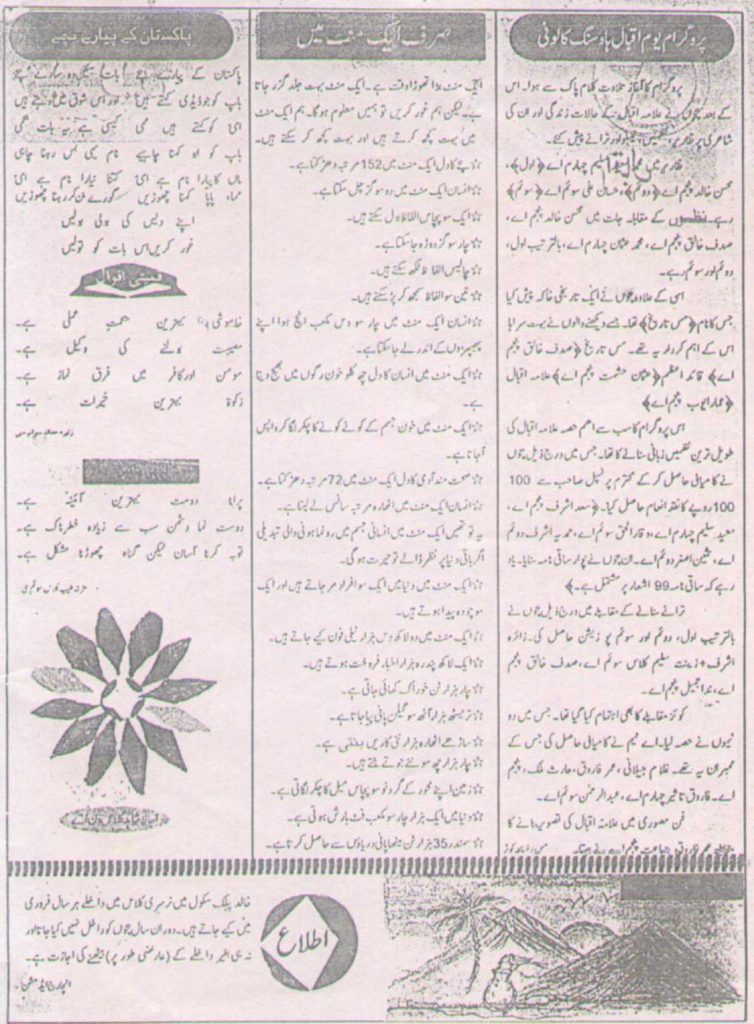 پروگرام یوم اقبال ہاؤسنگ کالونی
پروگرام کا آغاز تلاوت کلام پاک سے ہوا۔ اس
کے بعد بچوں نے علامہ اقبال کے حالات زندگی اور ان کی
شاعری پر تقاریر، نظمیں، ٹیبلو اور ترانے پیش کئے۔
تقاریر میں محمد سلیم چہارم اے ﴿اول﴾،
محسن خالد پنجم اے ﴿دوئم﴾، حسان علی سوئم اے ﴿سوئم﴾
رہے۔ نظموں کے مقابلہ جات میں محسن خالد پنجم اے،
صدف خالق پنجم اے، محمد عثمان چہارم اے، بالترتیب اول،
دوئم اور سوئم رہے۔
اسی کے علاوہ بچوں نے ایک تاریخی خاکہ پیش کیا
جس کا نام ﴿مس تاریخ﴾ تھا۔ جسے دیکھنے والوں نے بہت سراہا
اس کے اہم کردار یہ تھے۔ مس تاریخ ﴿صدف خالق پنجم
اے﴾ قائد اعظم ﴿عثمان حشمت پنجم اے﴾ علامہ اقبال
﴿عمار ایوب پنجم اے﴾
اس پروگرام کا سب سے اہم حصہ علامہ اقبال کی
طویل ترین نظمیں زبانی سنانے کا تھا۔ جس میں درج ذیل بچوں
نے کامیابی حاصل کر کے محترم پرنسپل صاحب سے 100
100 روپے کا نقد انعام حاصل کیا۔ ﴿سعد اشرف پنجم اے،
معید سلیم چہارم اے، وقار الحق سوئم اے، حمدیہ اشرف دوئم
اے، اصغر دوئم اے۔ ان بچوں نے پورا ساقی نامہ سنایا۔ یاد
رہے کہ ساقی نامہ 99 اشعار پر مشتمل ہے۔﴾
ترانے سنانے کے مقابلے میں درج ذیل بچوں نے
بالترتیب اول، دوئم اور سوئم پوزیشن حاصل کی۔ زائرہ
اشرف، زینت سلیم کلاس سوئم اے، صدف خالق پنجم
اے، ندا جمیل پنجم اے۔
کوئز مقابلے کا بھی اہتمام کیا گیا تھا۔ جس میں دو
ٹیموں نے حصہ لیا۔ اے ٹیم نے کامیابی حاصل کی جس کے
ممبران یہ تھے۔ غلام جیلانی، عمر فاروق، حارث ملک، پنجم
اے۔ فاروق تاثیر چہارم اے، عبدالرحمن سوئم اے۔
فن مصوری میں علامہ اقبال کی تصویر بنانے کا
مقابلہ عمر فاروق جماعت پنجم اے نے جیتا۔
صرف ایک منٹ میں
ایک منٹ بڑا تھوڑا وقت ہے۔ ایک منٹ بہت جلد گزر جاتا
ہے لیکن ہم غور کریں تو ہمیں معلوم ہوگا۔ ہم ایک منٹ
میں بہت کچھ کرتے ہیں اور بہت کچھ کر سکتے ہیں۔
☆ بچے کا دل ایک منٹ میں 152 مرتبہ دھڑکتا ہے۔
☆ انسان ایک منٹ میں دو سو گز چل سکتا ہے۔
☆ ایک سو پچاس الفاظ بول سکتے ہیں۔
☆ چار سو گز دوڑا جا سکتا ہے۔
☆ چالیس الفاظ لکھ سکتے ہیں۔
☆ تین سو الفاظ سمجھ کر پڑھ سکتے ہیں۔
☆ انسان ایک منٹ میں چار سو دس مکعب انچ ہوا اپنے
پھیپھڑوں کے اندر لے جا سکتا ہے۔
☆ ایک منٹ میں انسان کا دل چھ کلو خون رگوں میں بھیج دیتا
ہے۔
☆ ایک منٹ میں خون جسم کے کونے کونے کا چکر لگا کر واپس
آجاتا ہے۔
☆ صحت مند آدمی کا دل ایک منٹ میں 72 مرتبہ دھڑکتا ہے۔
☆ انسان ایک منٹ میں اٹھارہ مرتبہ سانس لے لیتا ہے۔
یہ تو تھیں ایک منٹ میں انسانی جسم میں رونما ہونی والی تبدیلی
اگر باقی دنیا پر نظر ڈالے تو حیرت ہوگی۔
☆ ایک منٹ میں دنیا میں ایک سو افراد مر جاتے ہیں اور ایک
سو چودہ پیدا ہوتے ہیں۔
☆ ایک منٹ میں دو لاکھ دس ہزار ٹیلی فون کیے جاتے ہیں۔
☆ ایک لاکھ پندرہ ہزار اخبار فروخت ہوتے ہیں۔
☆ چار ہزار ٹن خوراک کھائی جاتی ہے۔
☆ تریسٹھ ہزار آٹھ سو گیلن پانی پیا جاتا ہے۔
☆ ساڑھے اٹھارہ ہزار نئی کاریں بنتی ہے۔
☆ چار ہزار چھ سو نئے جوتے بنتے ہیں۔
☆ زمین اپنے محور کے گرد نو سو پچاس میل کا چکر لگاتی ہے۔
☆ دنیا میں ایک ہزار چار سو مکعب فٹ بارش ہوتی ہے۔
☆ سمندر 35 ہزار ٹن میٹھا پانی دریاؤں سے حاصل کرتا ہے۔
پاکستان کے پیارے بچے
پاکستان کے پیارے بچے بات سنیں وہ سارے بچے
باپ کو جو ڈیڈی کہتے ہیں اور اس شوق میں جو رہتے ہیں
امی کو کہتے ہیں ممی کیسی ہے یہ بات نکمی
باپ کو ابو کہنا چاہیے نام یہی بس رہنا چاہیے
ماں کا پیارا نام ہے امی کتنا نیارا نام ہے امی
مما، پاپا کہنا چھوڑیں گورے بن کر رہنا چھوڑیں
اپنے دیس کی بولی بولیں
غور کریں اس بات کو تولیں
قیمتی اقوال
خاموشی بہترین حکمت عملی ہے۔
مصیبت بولنے کی وکیل ہے۔
مومن اور کافر میں فرق نماز ہے۔
زکوۃ بہترین خیرات ہے۔
پرانا دوست بہترین آئینہ ہے۔
دوست نما دشمن سب سے زیادہ خطرناک ہے۔
توبہ کرنا آسان لیکن گناہ چھوڑنا مشکل ہے۔
اطلاع
خالد پبلک سکول میں نرسری کلاس میں داخلے ہر سال فروری
میں کیے جاتے ہیں۔ دوران سال بچوں کو داخل نہیں کیا جاتا اور
نہ ہی بغیر داخلے کے (عارضی طور پر) بیٹھنے کی اجازت ہے۔
انچارج ایڈمشن۔